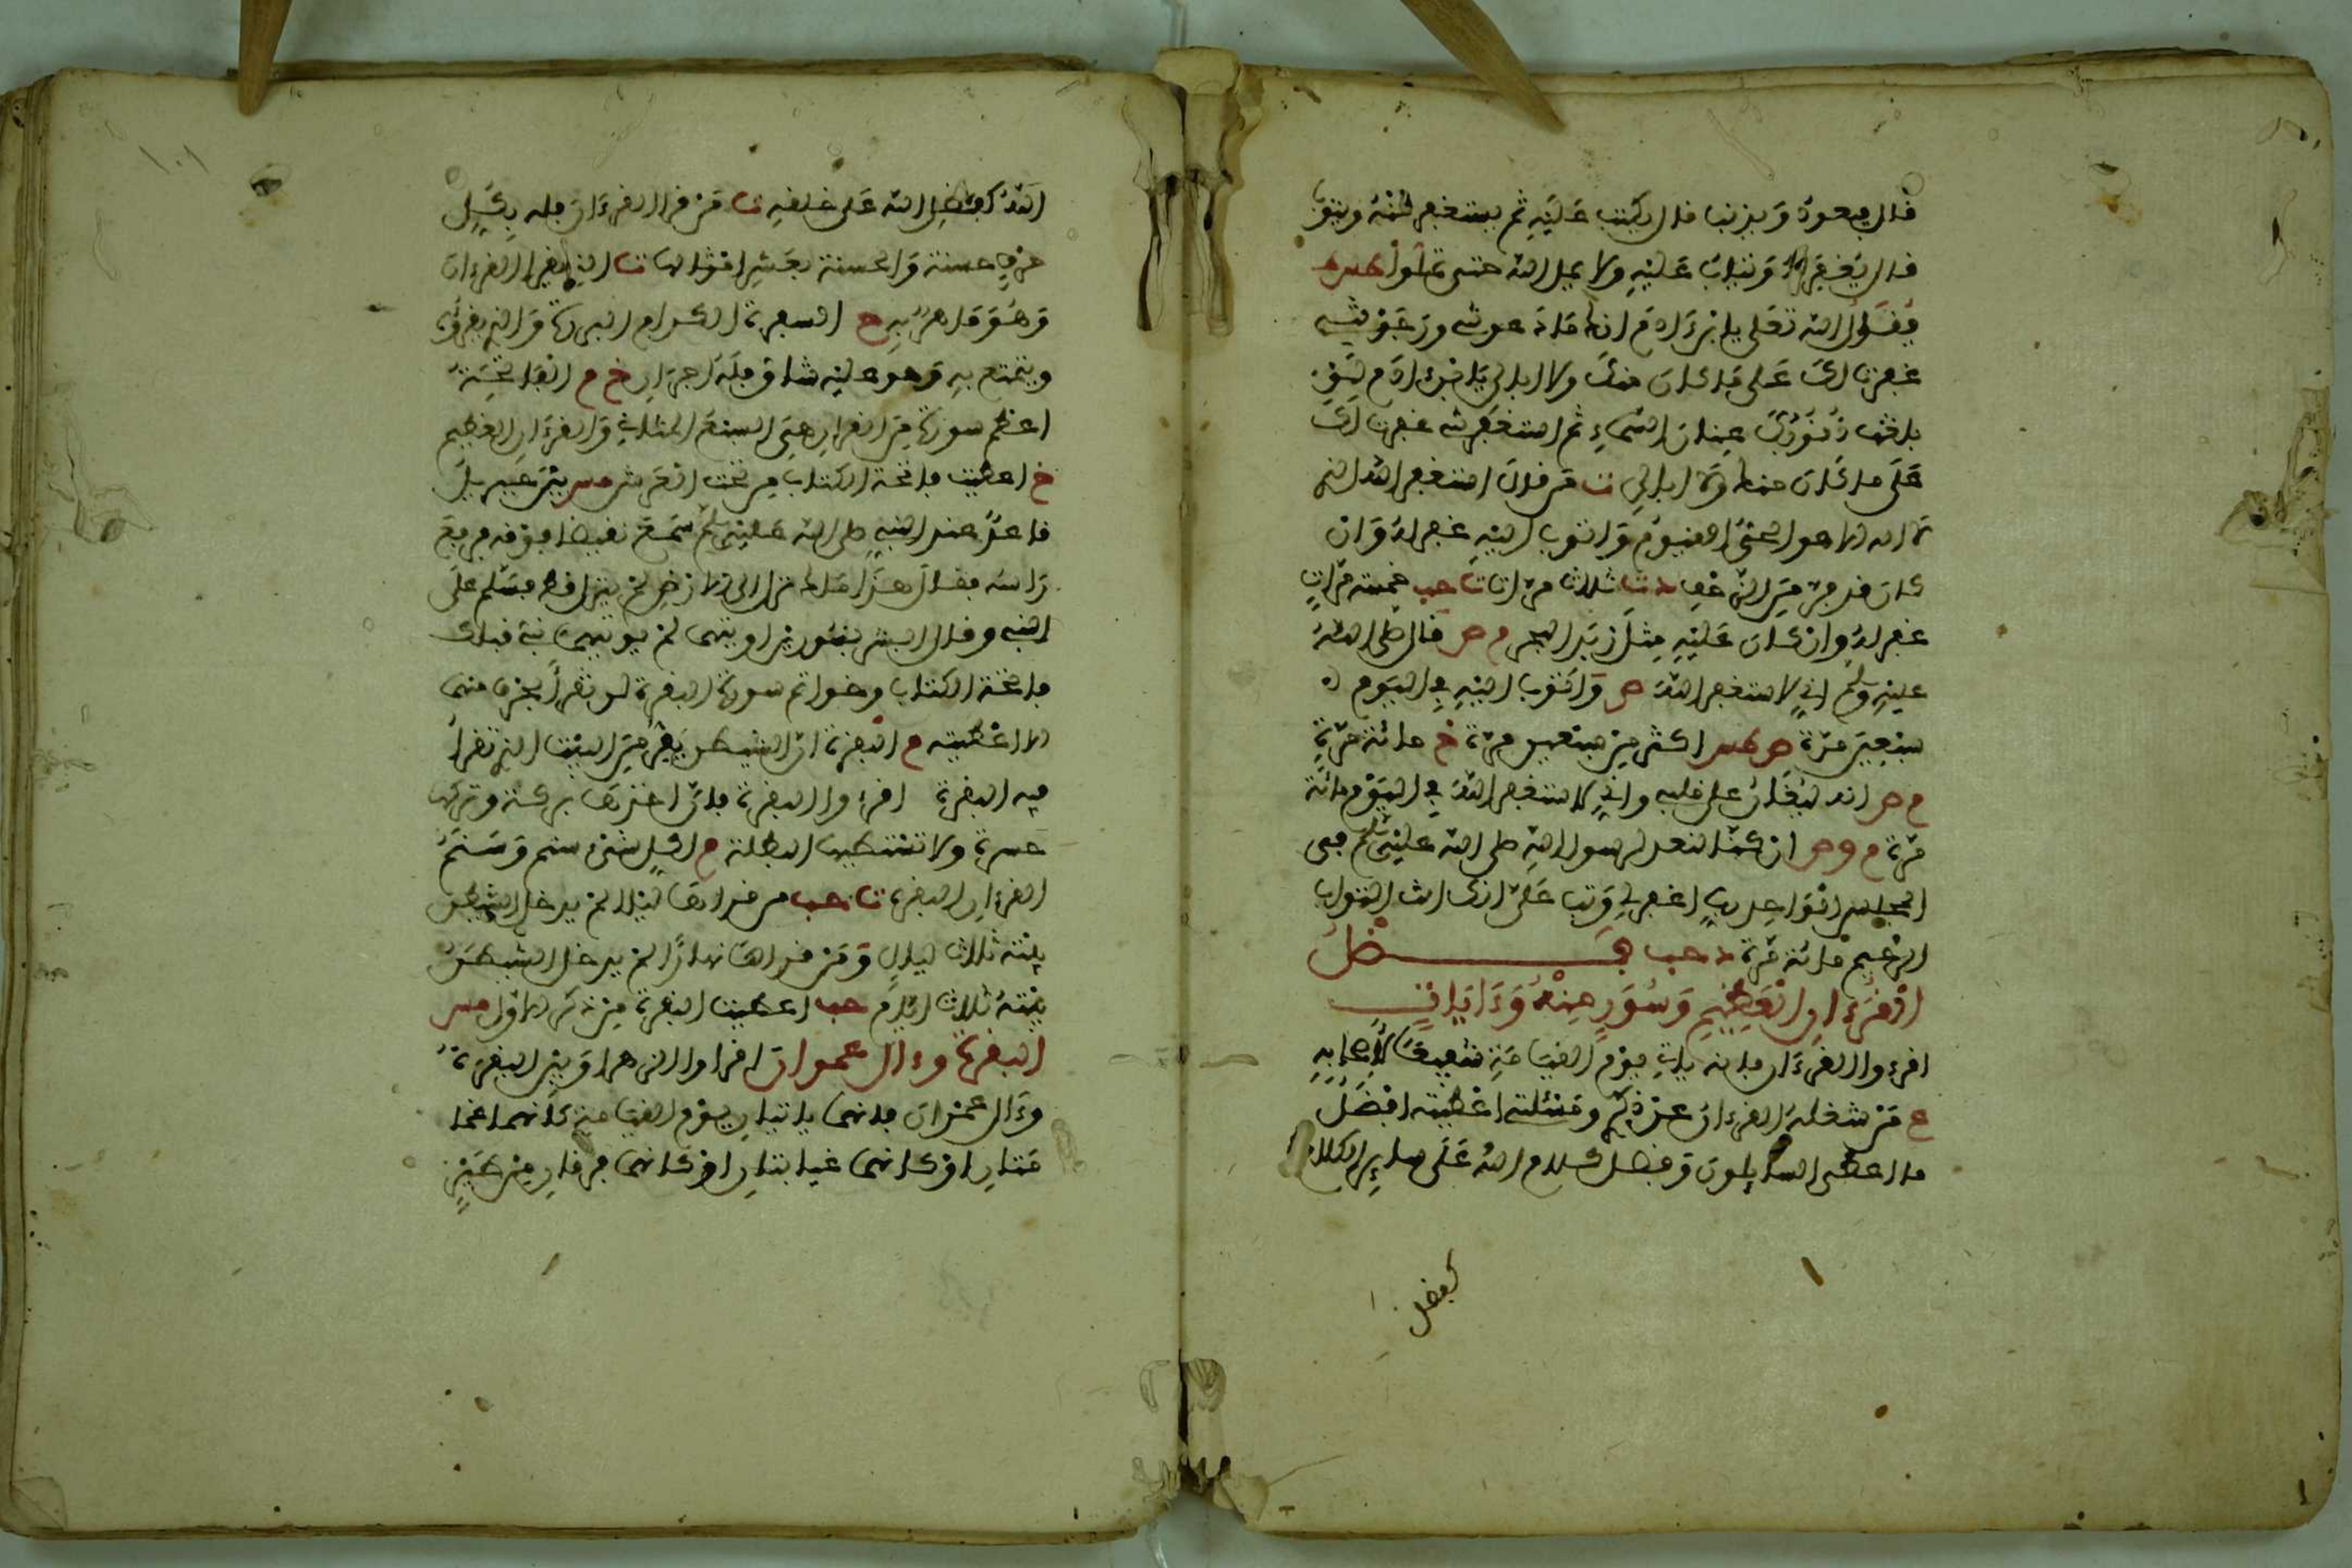 قال فيعود ويذنب قال يكتب عليه ثم يستغفر منه ويتوب
قال يغفر له ويتاب عليه ولا يمل الله حتى تملوا طس
يقول الله تعلى يا ابن ءادم انك ما دعوتني ورجوتني
غفرت لك على ما كان منك ولا ابالي يا ابن ءادم لو
بلغت ذنوبك عنان السماء ثم استغفرتني غفرت لك
على ما كان منك ولا ابالي ت من قال استغفر الله الذي
لا اله الا هو الحي القيوم واتوب اليه غفر له وان
كان قد فر من الزحف د ت ثلاث مرات ت حب خمس مرات
غفر له وان كان عليه مثل زبد البحر م ص قال صلى الله
عليه وسلم اني لاستغفر الله ص واتوب اليه في اليوم
سبعين مرة ص طس اكثر من سبعين مرة خ مائة مرة
م ص انه ليغان على قلبي واني لاستغفر الله في اليوم مائة
مرة م و ص ان كنا لنعد لرسول الله صلى الله عليه وسلم في
المجلس الواحد رب اغفر لي وتب علي انك انت التواب
الرحيم مائة مرة د حب فضل
القرءان العظيم وسور منه وءايات
اقرءوا القرءان فانه ياتي يوم القيامة شفيعا لاصحابه
م من شغله القرءان عن ذكري ومسئلتي اعطيته افضل
ما اعطي السايلون وفضل كلام الله على ساير الكلام
كفضل
١٠١
كفضل الله على خلقه ت من قرا القرءان فله بكل
حرف حسنة والحسنة بعشر امثالها ت الذي يقرا القرءان
وهو ماهر به مع السفرة الكرام البررة والذي يقرؤه
ويتتعتع به وهو عليه شاق فله اجران خ م الفاتحة
اعظم سورة من القرءان هي السبع المثاني والقرءان العظيم
خ اعطيت فاتحة الكتاب من تحت العرش مس بينا جبريل
قاعد عند النبي صلى الله عليه وسلم سمع نقيضا فوقه فرفع
راسه فقال هذا ملك نزل الى الارض لم ينزل قط فسلم على
النبي وقال ابشر بنورين اوتيتهما لم يوتهما نبي قبلك
فاتحة الكتاب وخواتم سورة البقرة لن تقرا بحرف منهما
الا اعطيته م البقرة ان الشيطن يفر من البيت الذي تقرا
فيه البقرة اقرءوا البقرة فان اخذها بركة وتركها
حسرة ولا تستطيعها البطلة م لكل شيء سنام وسنام
القرءان البقرة ت حب من قراها ليلا لم يدخل الشيطن
بيته ثلاث ليال ومن قراها نهارا لم يدخل الشيطن
بيته ثلاث ايام حب اعطيت البقرة من الذكر الاول مس
البقرة وءال عمران اقرءوا الزهراوين البقرة
وءال عمران فانهما ياتيان يوم القيامة كانهما غما
متان او كانهما غيايتان او كانهما فرقان من طير